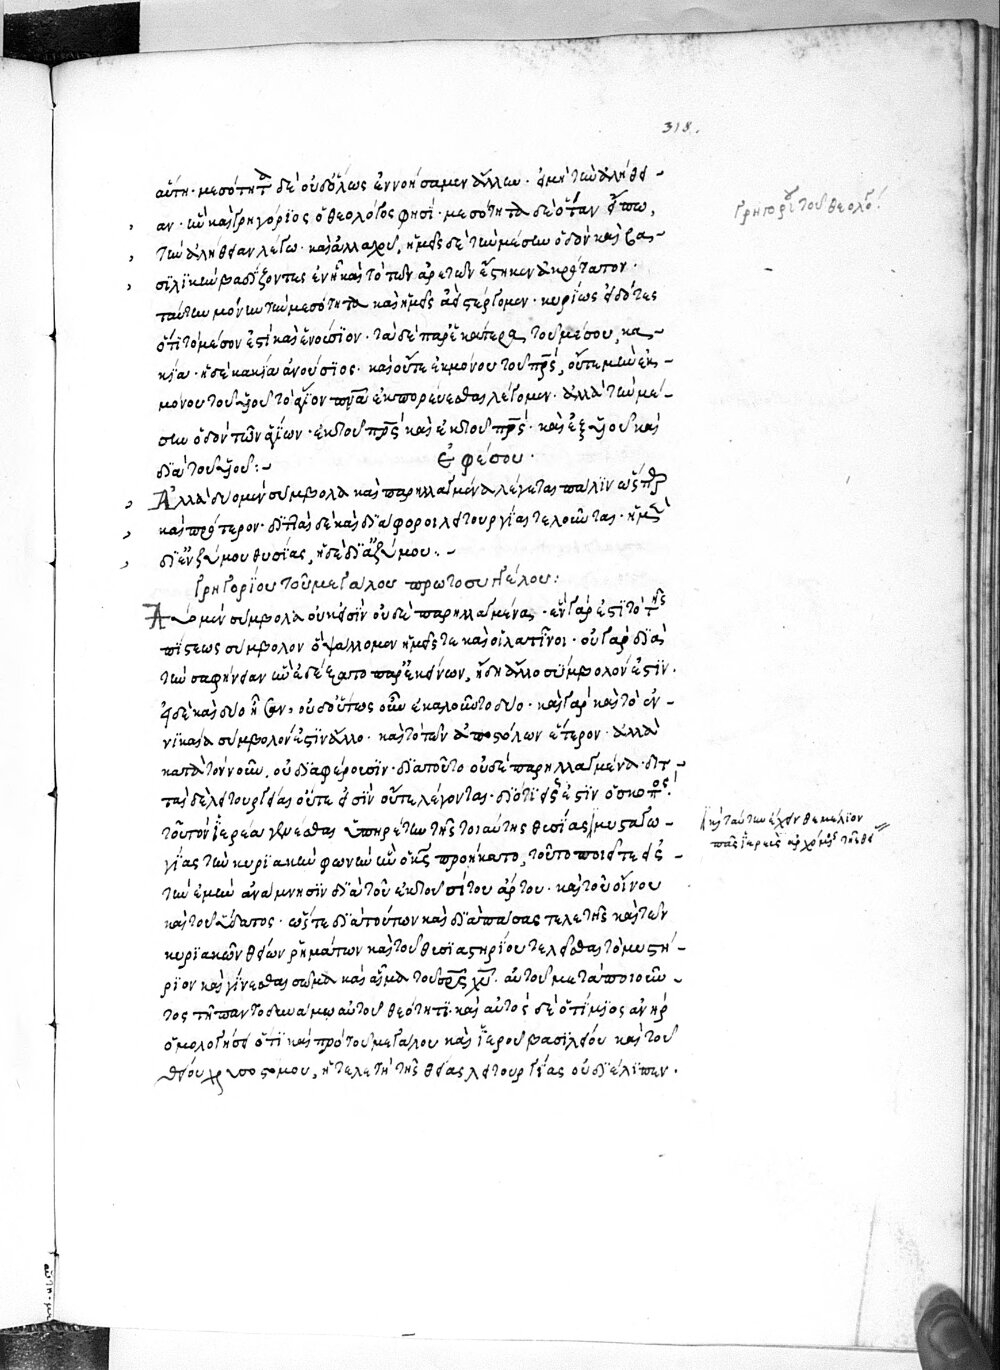 318.
αὕτη· μεσότητα δὲ οὐδόλως ἐννοήσαμεν ἄλλην· εἰ μὴ τὴν ἀλήθει-
αν· ἣν καὶ Γρηγόριος ὁ θεολόγος φησί· μεσότητα δὲ ὅταν εἴπω,
τὴν ἀλήθειαν λέγω· καὶ ἀλλαχοῦ, ἡμεῖς δὲ τὴν μέσην ὁδὸν καὶ βα-
σιλικὴν βαδίζοντες ἐν ᾗ καὶ τὸ τῶν ἀρετῶν ἕστηκεν ἀκρότατον·
ταύτην μόνην τὴν μεσότητα καὶ ἡμεῖς στέργομεν· κυρίως εἰδότες
ὅτι τὸ μέσον ἐστὶ καὶ ἐνούσιον· τὰ δὲ παρ' ἑκάτερα τοῦ μέσου, κα-
κία· ἡ δὲ κακία ἀνούσιος· καὶ οὔτε ἐκ μόνου τοῦ πρς, οὔτε μὴν ἐκ
μόνου τοῦ υἱοῦ τὸ ἅγιον πνα ἐκπορεύεσθαι λέγομεν· ἀλλὰ τὴν μέ-
σην ὁδὸν τῶν ἁγίων· ἐκ τοῦ πρς καὶ ἐκ τοῦ πρς· καὶ ἐξ υἱοῦ καὶ
διὰ τοῦ υἱοῦ:-
Ἐφέσου·
Ἀλλὰ δύο μὲν σύμβολα καὶ παρηλλαγμένα λέγεται πάλιν ὥσπερ
καὶ πρότερον· διτταὶ δὲ καὶ διάφοροι λειτουργίαι τελοῦνται· ἡ μὲν
δι' ἐνζύμου θυσίας, ἡ δὲ δι' ἀζύμου:-
Γρηγορίου τοῦ μεγάλου πρωτοσυγγέλου:
Δύο μὲν σύμβολα οὐκ εἰσὶν οὐδὲ παρηλλαγμένα· ἓν γάρ ἐστι τὸ τῆς
πίστεως σύμβολον ὃ ψάλλομεν ἡμεῖς τε καὶ οἱ λατῖνοι· οὐ γὰρ διὰ
τὴν σαφήνειαν ἣν ἐδέξατο παρ' ἐκείνων, ἤδη ἄλλο σύμβολόν ἐστιν·
εἰ δὲ καὶ δύο ἦσαν, οὐδ' οὕτως οὖν ἐκαλοῦντο δύο· καὶ γὰρ καὶ τὸ ἐν
νικαίᾳ σύμβολόν ἐστιν ἄλλο· καὶ τὸ τῶν ἀποστόλων ἕτερον· ἀλλὰ
κατὰ τὸν νοῦν, οὐ διαφέρουσιν· διὰ τοῦτο οὐδὲ παρηλλαγμένα· διτ-
ταὶ δὲ λειτουργίαι οὔτε εἰσὶν οὔτε λέγονται· διότι εἷς ἐστιν ὁ σκοπός·
τοῦ τὸν ἱερέα γενέσθαι ὑπηρέτην τῆς τοιαύτης θυσίας μυσταγω-
γίας τῶν κυριακῶν φωνῶν ὧν ὁ κς προήκατο, τοῦτο ποιεῖτε εἰς
τὴν ἐμὴν ἀνάμνησιν διὰ τοῦ ἐκ τοῦ σίτου ἄρτου· καὶ τοῦ οἴνου
καὶ τοῦ ὕδατος· ὥστε διὰ τούτων καὶ διὰ πάσας τελετῆς καὶ τῶν
κυριακῶν θείων ρημάτων καὶ τοῦ θυσιαστηρίου τελεῖσθαι τὸ μυστή-
ριον καὶ γίνεσθαι σῶμα καὶ αἷμα τοῦ χυ· αὐτοῦ μεταποιοῦν-
τος τῇ παντοδυνάμῳ αὐτοῦ θεότητι· καὶ αὐτὸς δὲ ὁ τίμιος ἀνὴρ
ὁμολογήσει ὅτι καὶ πρὸ τοῦ μεγάλου καὶ ἱεροῦ βασιλείου καὶ τοῦ
θείου χρυσοστόμου, ἡ τελετὴ τῆς θείας λειτουργίας οὐ διέλιπεν·
Γρηγορίου τοῦ θεολόγου:
καὶ ταύτην ἔχειν θεμέλιον
πᾶς ἱερεὺς ἀρχόμενος τῆς θεί